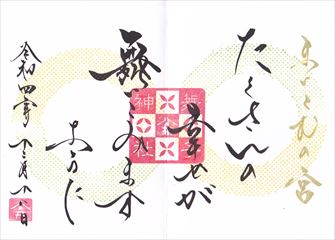 まいとむの宮
たくさんの
幸せが
舞
こみます
ように
令和四年 十二月十八日
舞
神
社